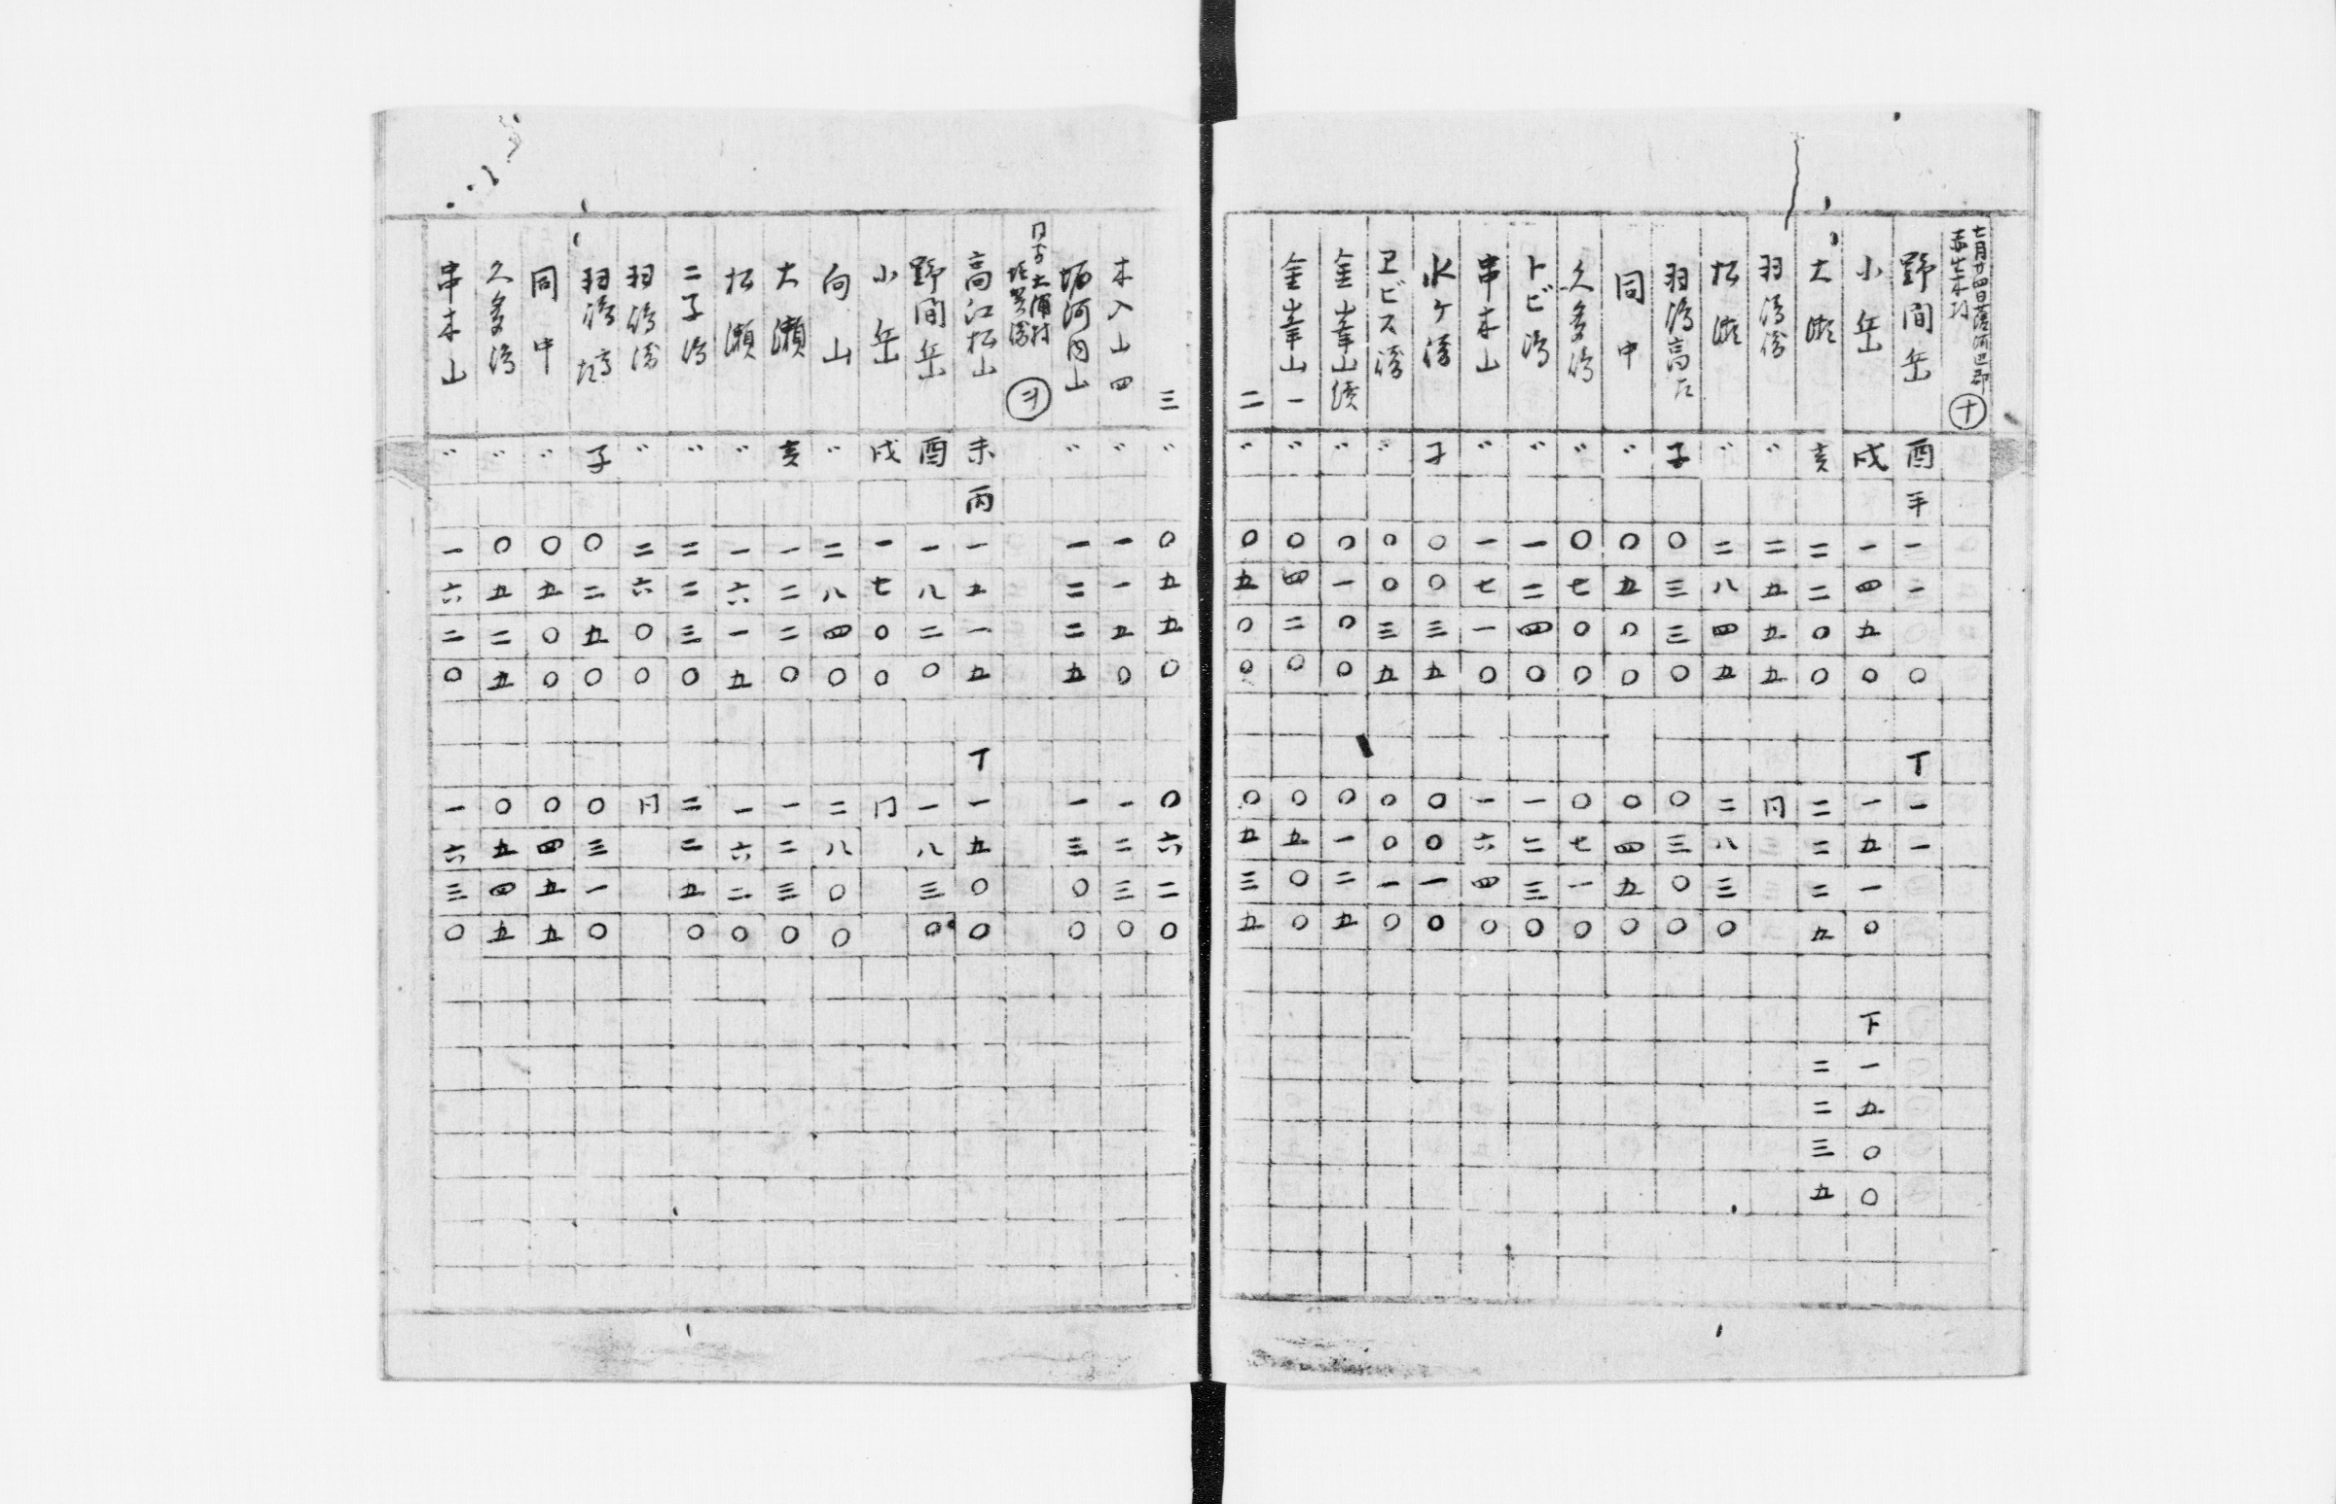 七月廿四日薩州川辺郡
赤生木村 十
野間岳 酉 手 一一 〇 丁 一一
小岳 戌 一四五〇 一五一〇 下 一五〇〇
大瀬 亥 二二〇〇 二二二五 二二三五
羽島崎 〃 二五五五 同
松瀬 〃 二八四五 二八三〇
羽島高 子 〇三三〇 〇三〇〇
同中 〃 〇五〇〇 〇四五〇
久多島 〃 〇七〇〇 〇七一〇
トビ島 〃 一二四〇 一二三〇
串木山 〃 一七一〇 一六四〇
水ケ崎 子 〇〇三五 〇〇一〇
ヱビス崎 〃 〇〇三五 〇〇一〇
金峯山続 〃 〇一〇〇 〇一二五
金峯山一 〃 〇四二〇 〇五〇〇
二 〃 〇五〇〇 〇五三五
三 〃 〇五五〇 〇六二〇
木入山四 〃 一一五〇 一二三〇
河内山 〃 一二二五 一三〇〇
同所大浦村
高江松山 未 丙 一五一五 丁 一五〇〇
野間岳 酉 一八二〇 一八三〇
小岳 戌 一七〇〇 同
向山 〃 二八四〇 二八〇〇
大瀬 亥 一二二〇 一二三〇
松瀬 〃 一六一五 一六二〇
二子島 〃 二二三〇 二二五〇
羽島崎 〃 二六〇〇 同
羽島 子 〇二五〇 〇三一〇
同中 〃 〇五〇〇 〇四五五
久多島 〃 〇五二五 〇五四五
串木山 〃 一六二〇 一六三〇